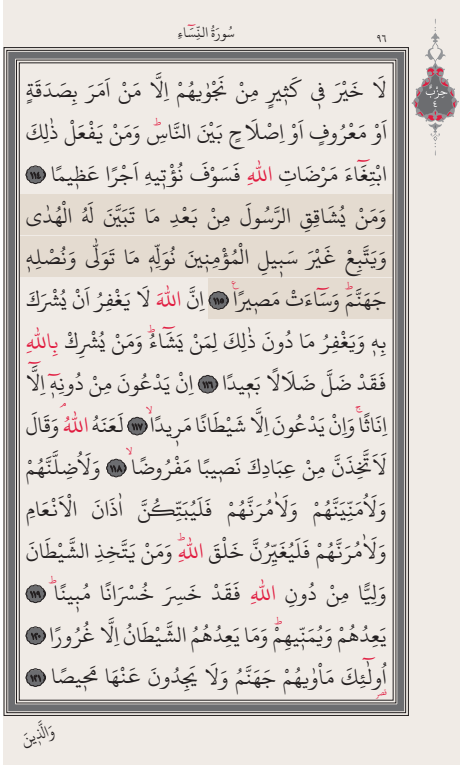 سُورَةُ النِّسَٓاءِ
٩٦
حِزْب
٤
لَا خَيْرَ فٖي كَثٖيرٍ مِنْ نَجْوٰيهُمْ اِلَّا مَنْ اَمَرَ بِصَدَقَةٍ
اَوْ مَعْرُوفٍ اَوْ اِصْلَاحٍ بَيْنَ النَّاسِؕ وَمَنْ يَفْعَلْ ذٰلِكَ
ابْتِغَٓاءَ مَرْضَاتِ اللّٰهِ فَسَوْفَ نُؤْتٖيهِ اَجْرًا عَظٖيمًا ﴿١١٤﴾
وَمَنْ يُشَاقِقِ الرَّسُولَ مِنْ بَعْدِ مَا تَبَيَّنَ لَهُ الْهُدٰى
وَيَتَّبِعْ غَيْرَ سَبٖيلِ الْمُؤْمِنٖينَ نُوَلِّهٖ مَا تَوَلّٰى وَنُصْلِهٖ
جَهَنَّمَؕ وَسَٓاءَتْ مَصٖيرًاࣖ ﴿١١٥﴾ اِنَّ اللّٰهَ لَا يَغْفِرُ اَنْ يُشْرَكَ
بِهٖ وَيَغْفِرُ مَا دُونَ ذٰلِكَ لِمَنْ يَشَٓاءُؕ وَمَنْ يُشْرِكْ بِاللّٰهِ
فَقَدْ ضَلَّ ضَلَالًا بَعٖيدًا ﴿١١٦﴾ اِنْ يَدْعُونَ مِنْ دُونِهٖٓ اِلَّٓا
اِنَاثًاۚ وَاِنْ يَدْعُونَ اِلَّا شَيْطَانًا مَرٖيدًاۙ ﴿١١٧﴾ لَعَنَهُ اللّٰهُۢ وَقَالَ
لَاَتَّخِذَنَّ مِنْ عِبَادِكَ نَصٖيبًا مَفْرُوضًاۙ ﴿١١٨﴾ وَلَاُضِلَّنَّهُمْ
وَلَاُمَنِّيَنَّهُمْ وَلَاٰمُرَنَّهُمْ فَلَيُبَتِّكُنَّ اٰذَانَ الْاَنْعَامِ
وَلَاٰمُرَنَّهُمْ فَلَيُغَيِّرُنَّ خَلْقَ اللّٰهِؕ وَمَنْ يَتَّخِذِ الشَّيْطَانَ
وَلِيًّا مِنْ دُونِ اللّٰهِ فَقَدْ خَسِرَ خُسْرَانًا مُبٖينًاؕ ﴿١١٩﴾
يَعِدُهُمْ وَيُمَنّٖيهِمْؕ وَمَا يَعِدُهُمُ الشَّيْطَانُ اِلَّا غُرُورًا ﴿١٢٠﴾
اُولٰٓئِكَ مَأْوٰيهُمْ جَهَنَّمُ وَلَا يَجِدُونَ عَنْهَا مَحٖيصًا ﴿١٢١﴾
قصر
وَالَّذٖينَ